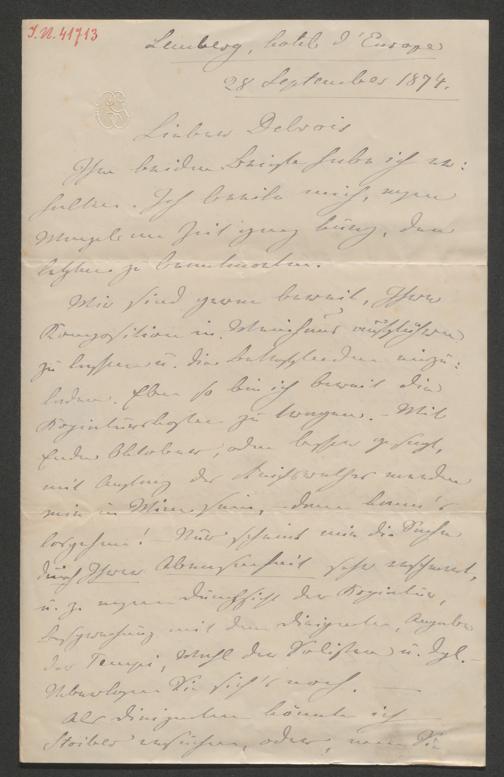 I.N. 41713
Lemberg, hotel d'Europe
28 September 1874.
Lieber Delvois
Ihre beiden Briefe habe ich er:
halten. Ich beeile mich, wegen
Mangel an Zeit ganz kurz, den
letzten zu beantworten.
Wir sind gerne bereit, Ihre
Komposition in Weinhaus aufführen
zu lassen u. die betreffenden einzu:
laden. Eben so bin ich bereit die
Kopiaturkosten zu tragen. – Mit
Ende Oktober, oder besser gesagt,
mit Anfang des Reichsrathes werden
wir in Wien sein, dann kann's
losgehen! Nur scheint mir die Sache
durch Ihre Abwesenheit sehr erschwert,
u. z. wegen Durchsicht der Kopiatur,
Besprechung mit dem Dirigenten, Angabe
der Tempi, Wahl der Solisten u. dgl. –
Ueberlegen Sie sich's noch. –
Als Dirigenten könnte ich
Stoiber ersuchen, oder, wenn Sie